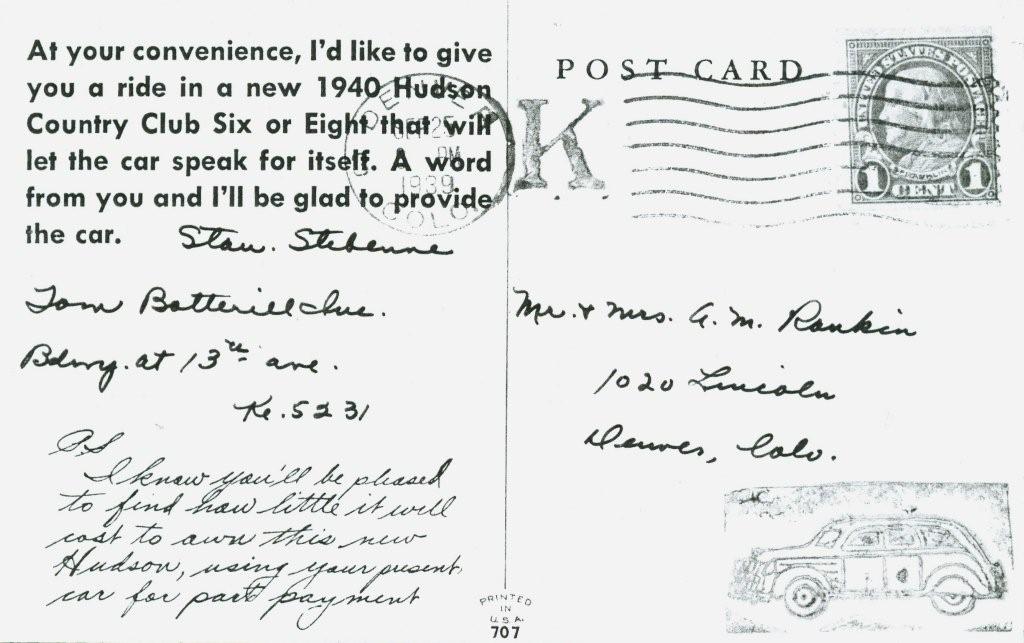 At your convenience, I'd like to give
you a ride in a new 1940 Hudson
Country Club Six or Eight that will
let the car speak for itself. A word
from you and I'll be glad to provide
the car. Stan. Stebenne
Tom Botterill Inc.
Bdwy. at 13th ave.
Ke. 5231
PS
I know you'll be pleased
to find how little it will
cost to own this new
Hudson, using your present
car for part payment
PRINTED
IN
U.S.A.
707
POST CARD
DENVER
25
PM
1939
COLO
K
UNITED STATES POSTAGE
FRANKLIN
1 CENT 1
Mr. & Mrs. A. M. Rankin
1020 Lincoln
Denver, Colo.